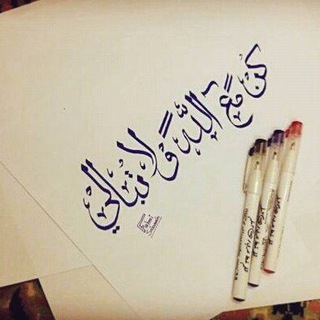 كن مع الله و لا تبالي